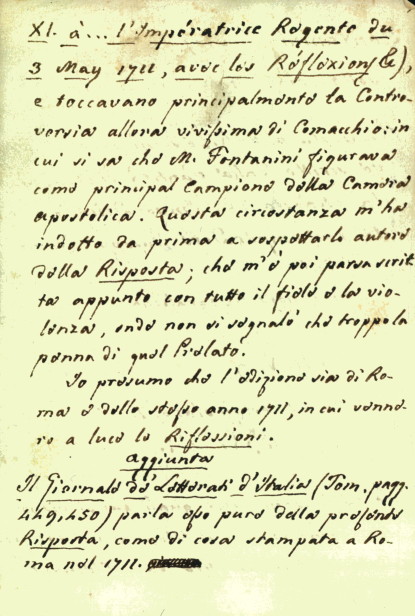 XI. à... l'Impératrice Regente du
3 May 1711, avec les Réflexions &),
e toccavano principalmente la Contro-
versia allora vivissima di Comacchio: in
cui si sa che M. Fontanini figurava
come principal Campione della Camera
Apostolica. Questa circostanza m'ha
indotto da prima a sospettarlo autore
della Risposta; che m'è poi parsa scrit-
ta appunto con tutto il fiele e la vio-
lenza, onde non si segnalò che troppo la
penna di quel Prelato.
Io presumo che l'edizione sia di Ro-
ma e dello stesso anno 1711, in cui venne-
ro a luce le Riflessioni.
Aggiunta
Il Giornale de' Letterati d'Italia (Tom. pagg.
449, 450) parla esso pure della presente
Risposta, come di cosa stampata a Ro-
ma nel 1711.